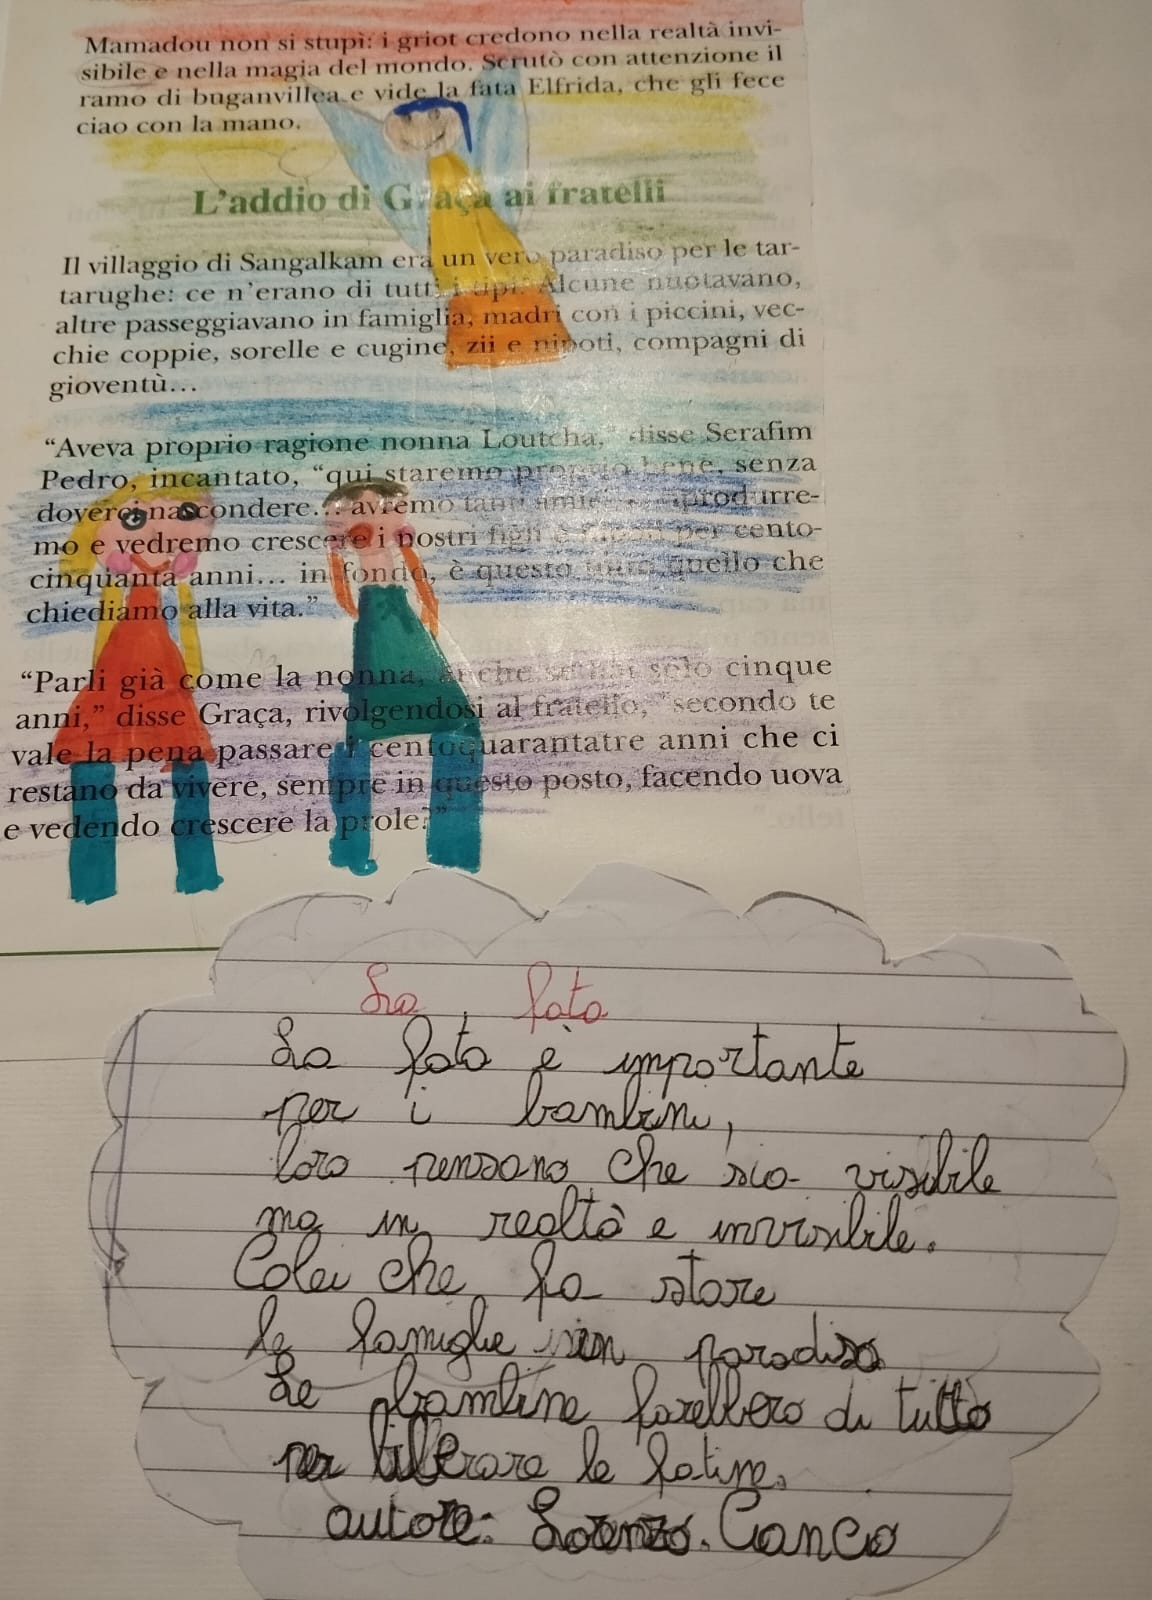 Mamadou non si stupì: i griot credono nella realtà invi-
sibile e nella magia del mondo. Scrutò con attenzione il
ramo di buganvillea e vide la fata Elfrida, che gli fece
ciao con la mano.
L'addio di Graça ai fratelli
Il villaggio di Sangalkam era un vero paradiso per le tar-
tarughe: ce n'erano di tutti i tipi. Alcune nuotavano,
altre passeggiavano in famiglia, madri con i piccini, vec-
chie coppie, sorelle e cugine, zii e nipoti, compagni di
gioventù...
"Aveva proprio ragione nonna Loutcha," disse Serafim
Pedro, incantato, "qui staremo proprio bene, senza
doverci nascondere... avremo tanti amici produrre-
mo e vedremo crescere i nostri figli e nipoti per cento-
cinquanta anni... in fondo, è questo tutto quello che
chiediamo alla vita."
"Parli già come la nonna, anche se hai solo cinque
anni," disse Graça, rivolgendosi al fratello, "secondo te
vale la pena passare i centoquarantatre anni che ci
restano da vivere, sempre in questo posto, facendo uova
e vedendo crescere la prole?"
La fata
La fata è importante
per i bambini,
loro pensano che sia visibile
ma in realtà e invisibile.
Colei che fa stare
le famiglie in paradiso
Le bambine farebbero di tutto
per liberare le fatine.
autore: Lorenzo. Canco